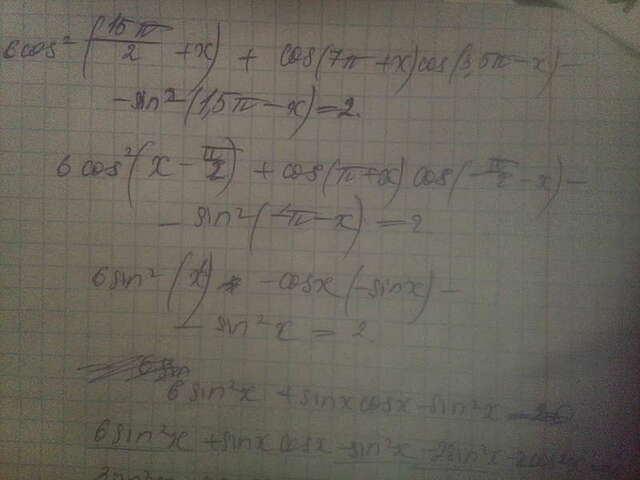 6cos²(15π/2 + x) + cos(7π + x)cos(3,5π − x) −
− sin²(1,5π − x) = 2.
6cos²(x − π/2) + cos(π + x) cos(−π/2 − x) −
− sin²( π − x) = 2
6sin²(x) − cosx(−sinx) −
− sin²x = 2
6sin²x + sinx cosx − sin²x
6sin²x + sinx cosx − sin²x − 2sin²x − 2cos²x